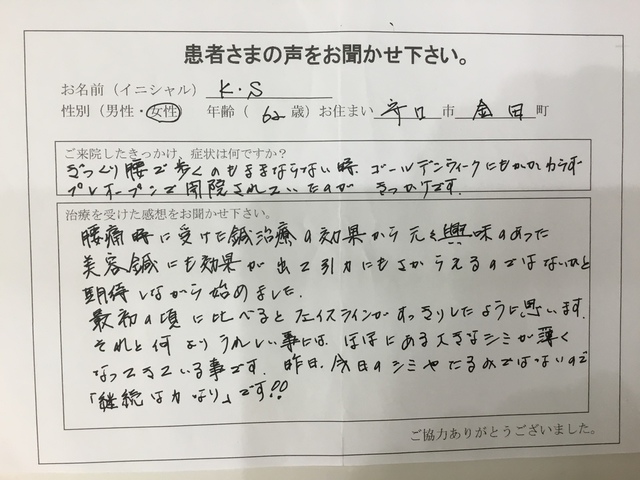 患者さまの声をお聞かせ下さい。
お名前（イニシャル） K.S
性別（男性・女性） 年齢（ 62 歳）お住まい 守口 市 金田 町
ご来院したきっかけ、症状は何ですか？
ぎっくり腰で歩くのもままならない時、ゴールデンウィークにもかかわらず
プレオープンで開院されていたのが きっかけです。
治療を受けた感想をお聞かせ下さい。
腰痛時に受けた鍼治療の効果から元々興味のあった
美容鍼にも効果が出て引力にもさからえるのではないかと
期待しながら始めました。
最初の頃に比べるとフェイスラインがすっきりしたように思います。
それと何よりうれしい事には、ほほにある大きなシミが薄く
なってきている事です。昨日、今日のシミやたるみではないので
「継続は力なり」です!!
ご協力ありがとうございました。